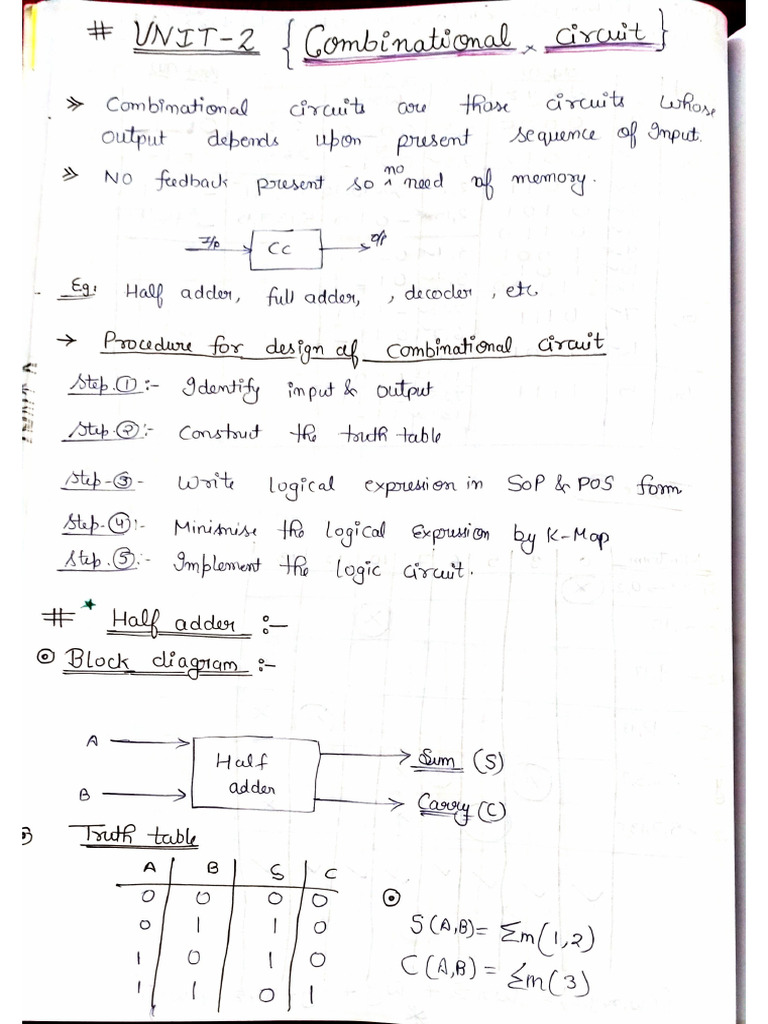 # UNIT-2 { Combinational circuit }
» Combinational circuits are those circuits whose
output depends upon present sequence of Input.
» NO feedback present so no need of memory.
I/p CC O/p
Eg: Half adder, full adder, , decoder, etc
→ Procedure for design of combinational circuit
Step.①:- Identify input & output
Step.②:- Construct the truth table
Step-③- Write logical expression in SoP & POS form
Step-④:- Minimise the logical Expression by K-Map
Step.⑤:- Implement the logic circuit.
# * Half adder :-
⊙ Block diagram :-
A Half adder Sum (S)
B Carry (C)
Truth table
A B S C
0 0 0 0
0 1 1 0
1 0 1 0
1 1 0 1
⊙
S(A,B)= Σm(1,2)
C(A,B) = Σm(3)